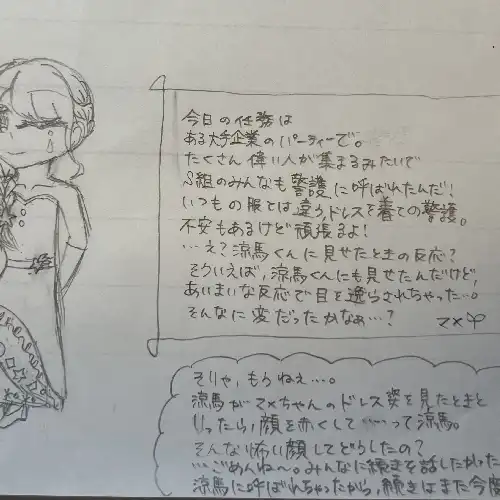 今日の任務は
ある大手企業のパーティーで。
たくさん偉い人が集まるみたいで
S組のみんなも警護に呼ばれたんだ!
いつもの服とは違う、ドレスを着ての警護。
不安もあるけど頑張るよ!
…え?涼馬くんに見せたときの反応?
そういえば、涼馬くんにも見せたんだけど、
あいまいな反応で目を逸らされちゃった…。
そんなに変だったかなぁ…?
そりゃ、もうねぇ…。
涼馬がマメちゃんのドレス姿を見たときと
いったら、顔を赤くして……って涼馬。
そんな怖い顔してどうしたの?
…ごめんね〜。みんなに続きを話したかった
涼馬に呼ばれちゃったから、続きはまた今度